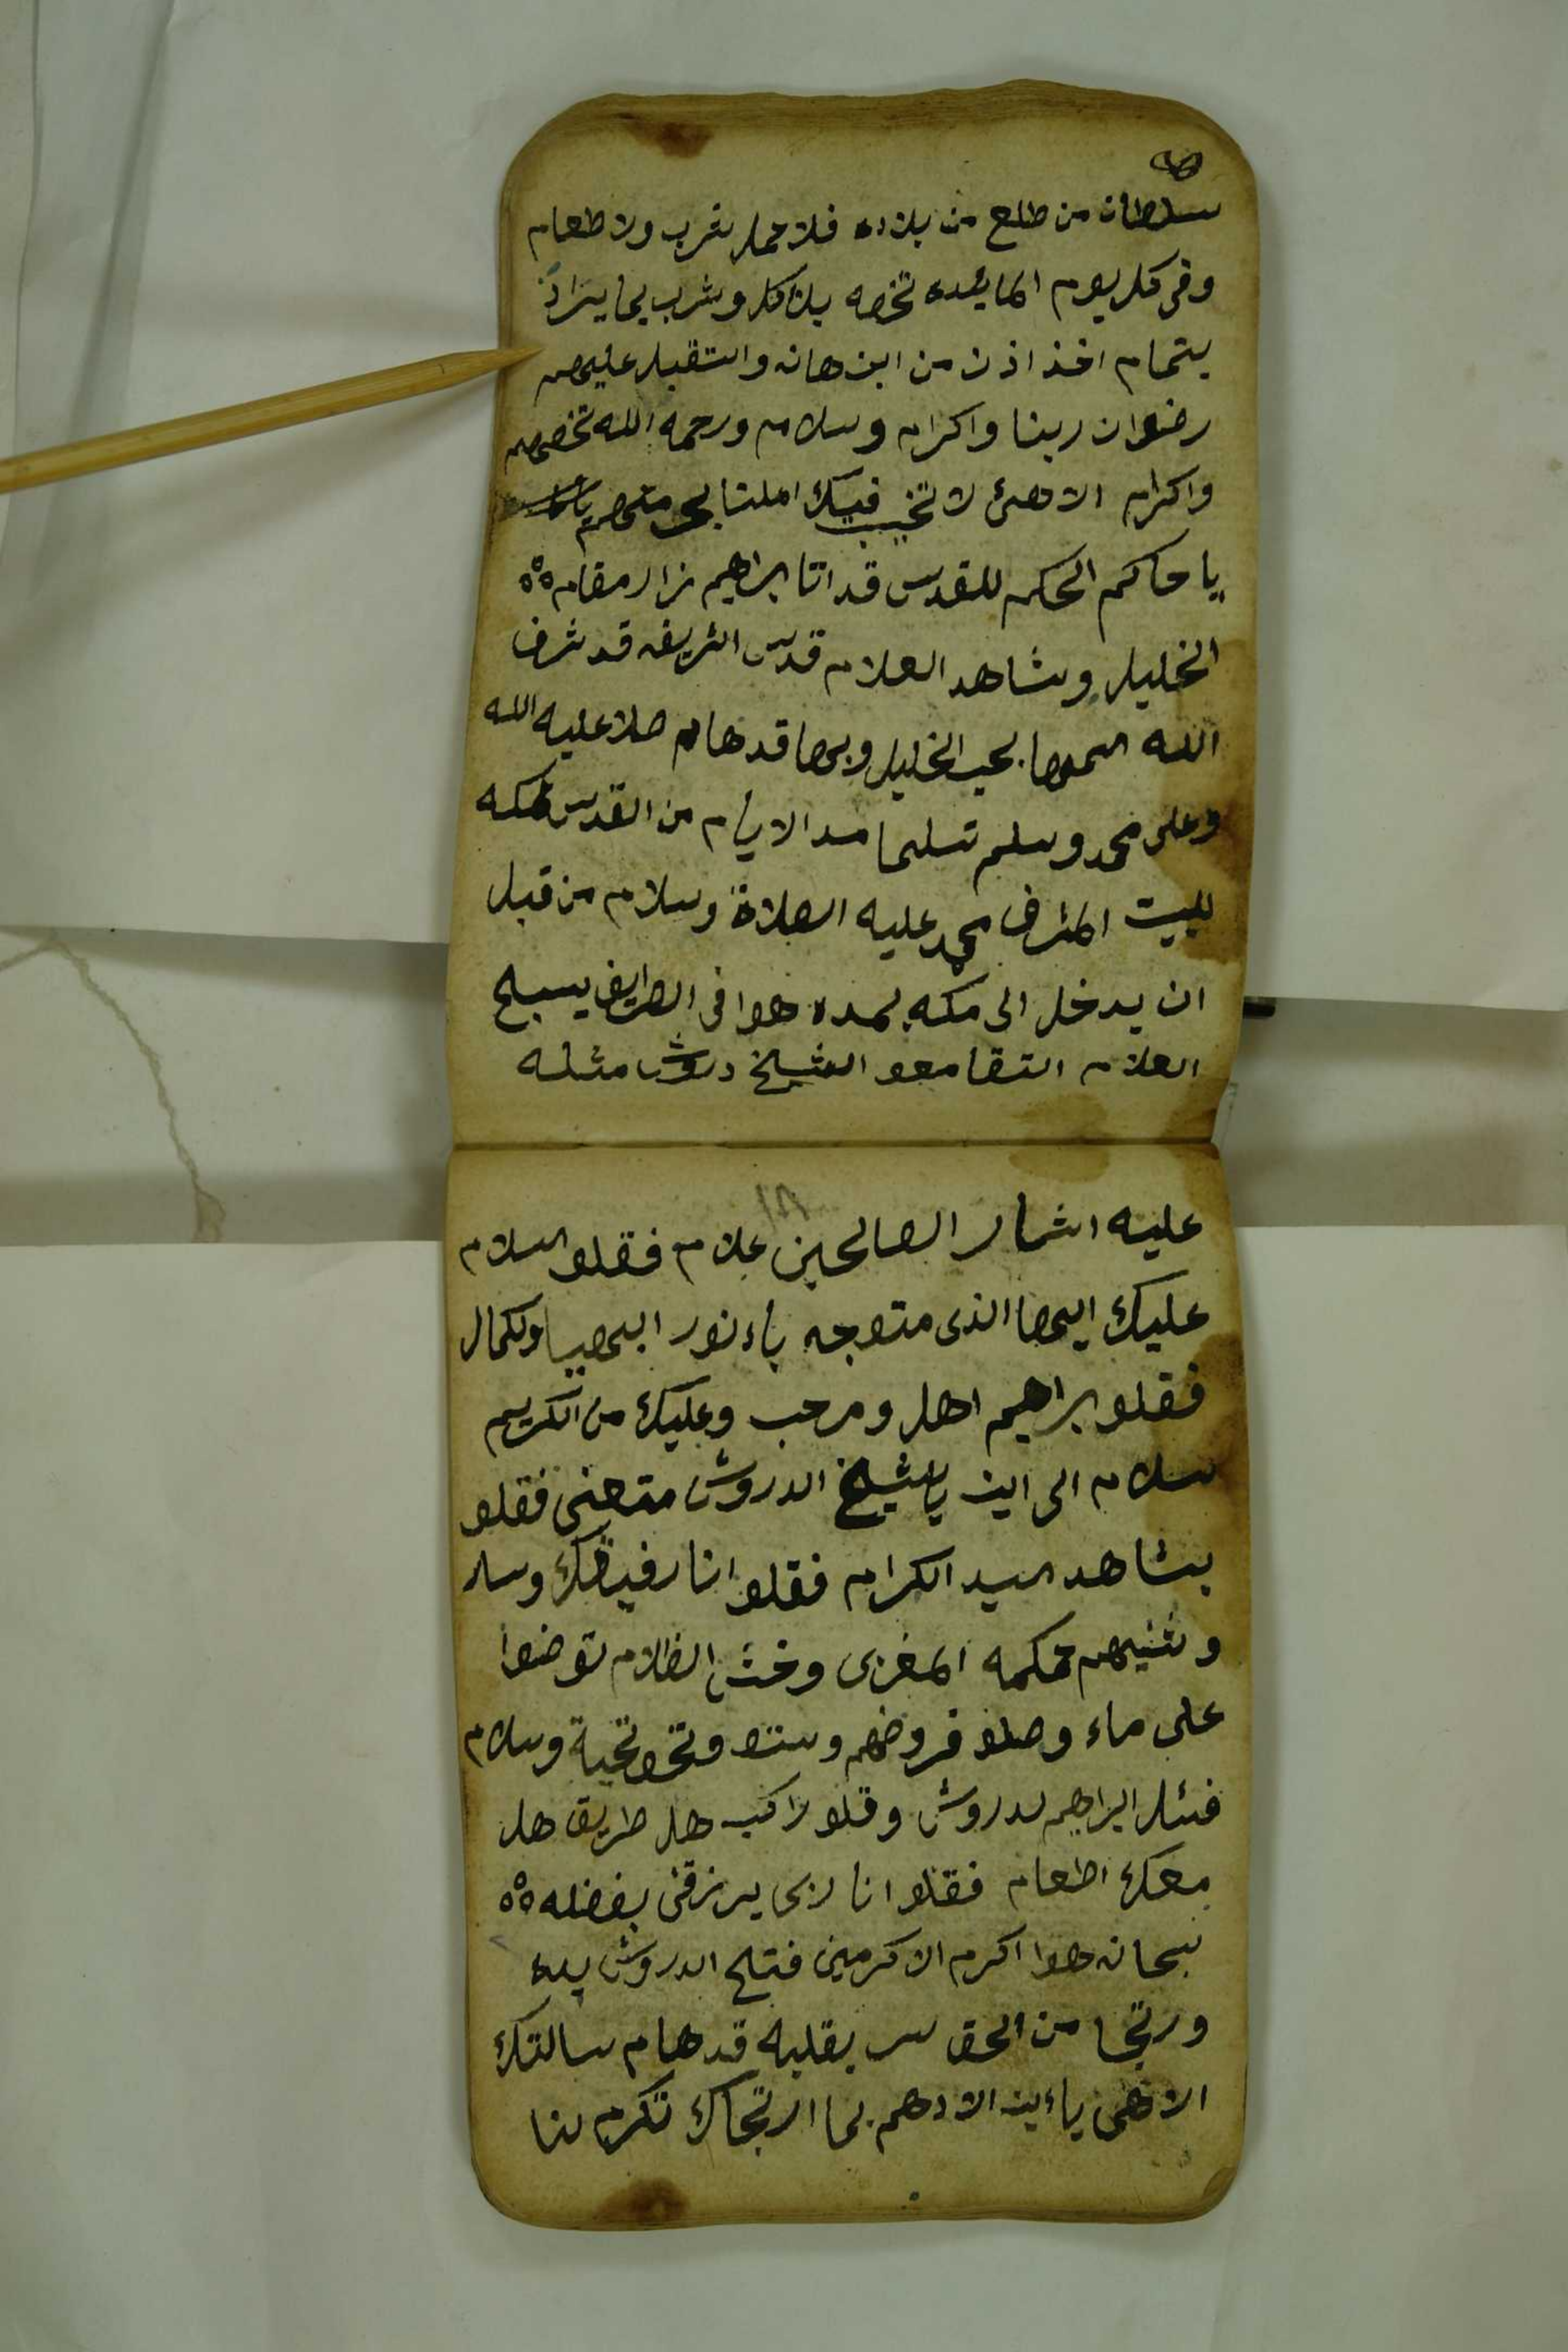 سلطان من طلع من بلاده فلا حمل شرب ولا طعام
وفي كل يوم المايئده تخصه بلاكل وشرب بما يراد
بتمام اخذ اذن من ابن هانه والتقبل عليهم
رضوان ربنا واكرام وسلام ورحمه الله تخصهم
واكرام الاهى لا تخيب فيك املنا بحرمتهم
يا حاكم الحكم للقدس قد اتا براهيم زار مقام
الخليل وشاهد العلام قدس الشريف قد شرف
الله السموها بحب الخليل وبها قد هام صلا عليه الله
وعلى محمد وسلم تسليما مد الايام من القدس لمكه
لبيت المشرف محمد عليه الصلاة وسلام من قبل
ان يدخل الى مكه بمده هوا في الطريق يسبح
العلام التقا معو الشيخ دروش مثله
عليه اشمار الصالحين علام فقلو السلام
عليك ايها الذى متوجه ياء نور البهيا ولكمال
فقلو براهيم اهل ومرحب وعليك من الكريم
سلام الى اين يالشيخ الدروش متعنى فقلو
بشاهد السيد الكرام فقلو انا رفيقك وسار
وثنيهم محكمه المغربى وخش الظلام توضوا
على ماء وصلو فروضهم وسننو وتخو تحية وسلام
فسئل ابراهيم لدروش وقلو راكب هل طريق هل
معك اطعام فقلو انا ربى يرزقنى بفضله
سبحانه هوا اكرم الاكرمين فتح الدروش يده
ورتجا من الحق سر بقلبه قد هام سالتك
الاهى ياء ين الادهم بما ارتجاك تكرم لنا